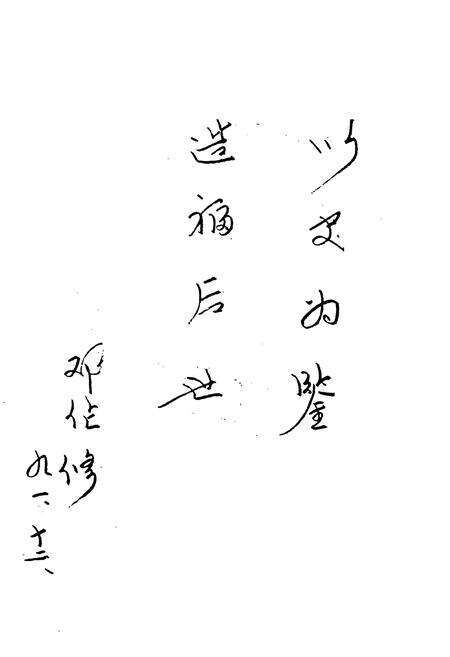 以史为鉴
造福后世
邓佐修
九一、十二、